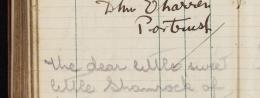 John O'
Portrush
The dear little sweet
little Shamrock of